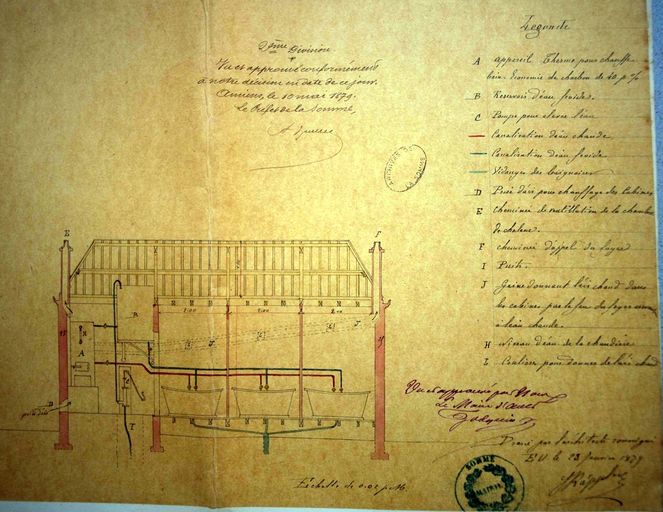 2ème Division
Vu et approuvé conformément
à notre décision en date de ce jour.
Amiens, le 10 mai 1879.
Le Préfet de la Somme,
Légende
A Appareil Therme pour chauffe
bain. Économie du charbon de 40 p %
B Réservoir d'eau froide.
C Pompe pour élever l'eau
Canalisation d'eau chaude
Canalisation d'eau froide
Vidanges des baignoires
D Prise d'air pour chauffage des Cabines
E Cheminée de ventilation de la chambre
de chaleur.
F cheminée d'appel du foyer
I Puits.
J Gaine donnant l'air chaud dans
les cabines par le feu du foyer
à l'eau chaude.
H Niveau d'eau de la chaudière
L Coulisses pour donner de l'air chaud
E
F
B
A
J
J
D
T
1.00
2.00
2.00
Vu et approuvé par nous
Le Maire d'Ault
Dressé par l'architecte soussigné
EU le 23 Janvier 1879
Échelle de 0.02 p. M.
SOMME
MAIRIE